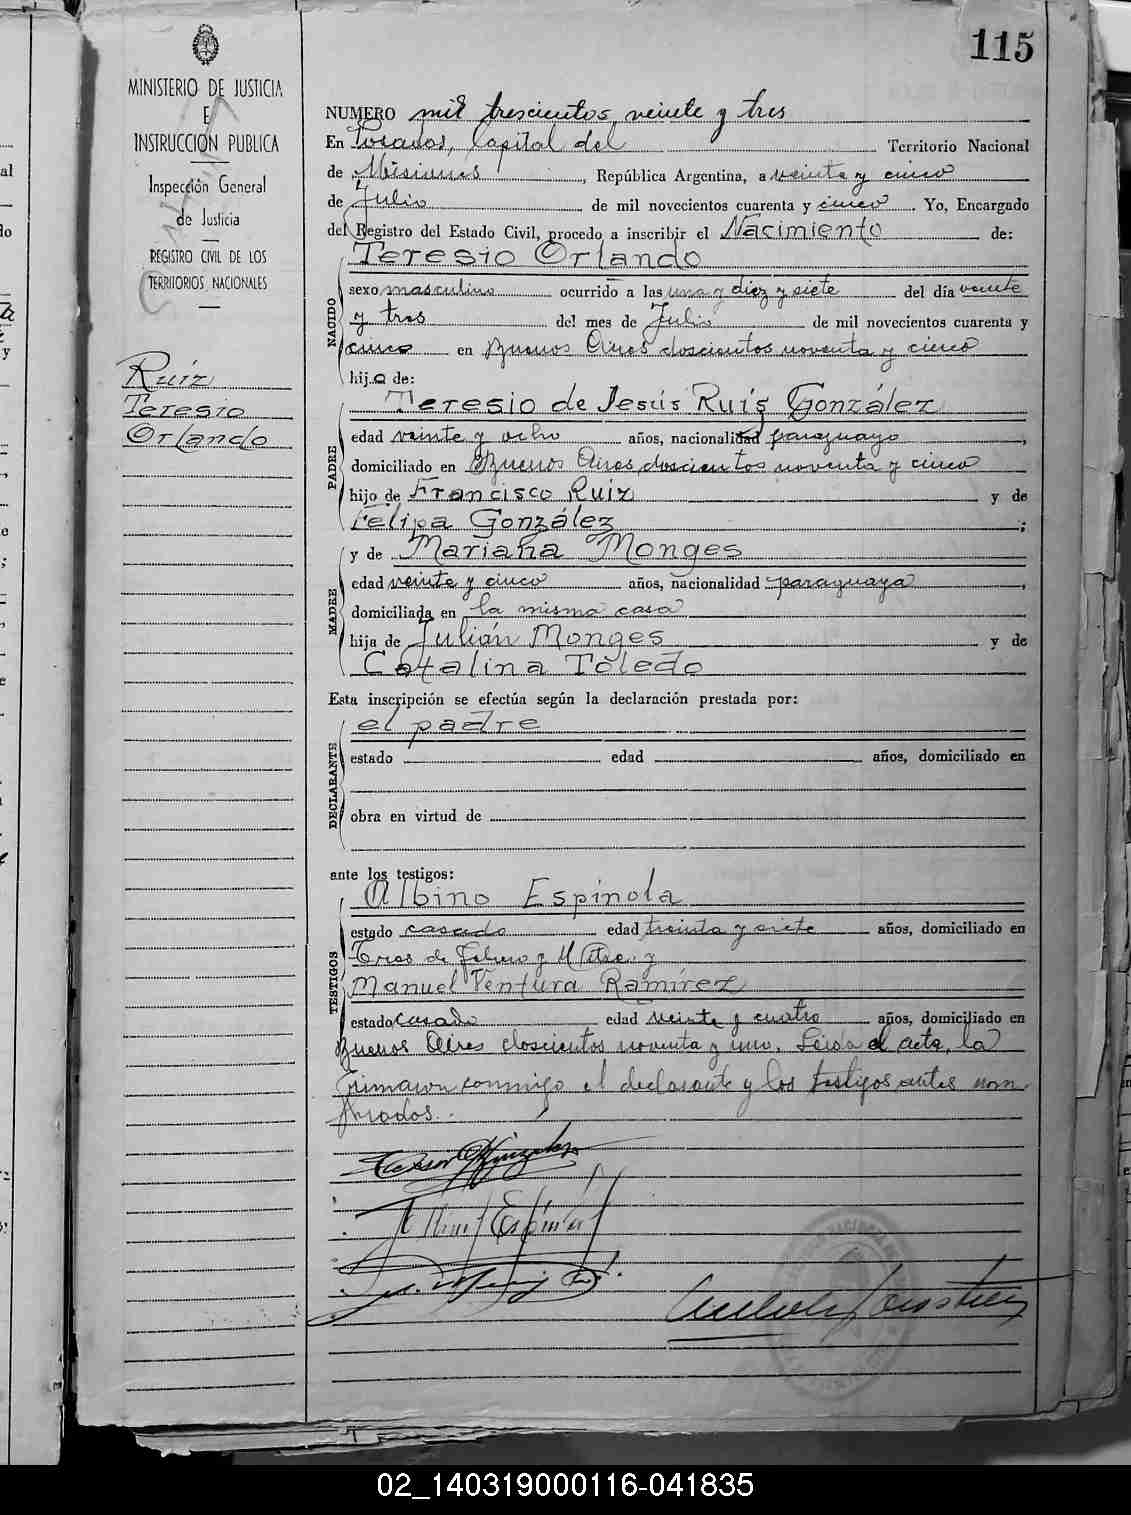 115
MINISTERIO DE JUSTICIA
E
INSTRUCCIÓN PUBLICA
Inspección General
de Justicia
REGISTRO CIVIL DE LOS
TERRITORIOS NACIONALES
Ruiz
Teresio
Orlando
NUMERO mil trescientos veinte y tres
En Posadas, Capital del Territorio Nacional
de Misiones, República Argentina, a veinte y cinco
de Julio de mil novecientos cuarenta y cinco. Yo, Encargado
del Registro del Estado Civil, procedo a inscribir el Nacimiento de:
NACIDO
Teresio Orlando
sexo masculino ocurrido a las una y diez y siete del día veinte
y tres del mes de Julio de mil novecientos cuarenta y
cinco en Buenos Aires doscientos noventa y cinco
hijo de:
PADRE
Teresio de Jesús Ruiz González
edad veinte y ocho años, nacionalidad paraguayo,
domiciliado en Buenos Aires doscientos noventa y cinco
hijo de Francisco Ruiz y de
Felipa González;
MADRE
y de Mariana Monges
edad veinte y cinco años, nacionalidad paraguaya,
domiciliada en la misma casa
hija de Julián Monges y de
Catalina Toledo
Esta inscripción se efectúa según la declaración prestada por:
DECLARANTE
el padre
estado edad años, domiciliado en
obra en virtud de
ante los testigos:
TESTIGOS
Albino Espinola
estado casado edad treinta y siete años, domiciliado en
Tres de Febrero y Mitre y
Manuel Ventura Ramírez
estado casado edad veinte y cuatro años, domiciliado en
Buenos Aires doscientos noventa y uno. Leida el acta, la
firmaron conmigo el declarante y los testigos antes nom
brados.
02_140319000116-041835